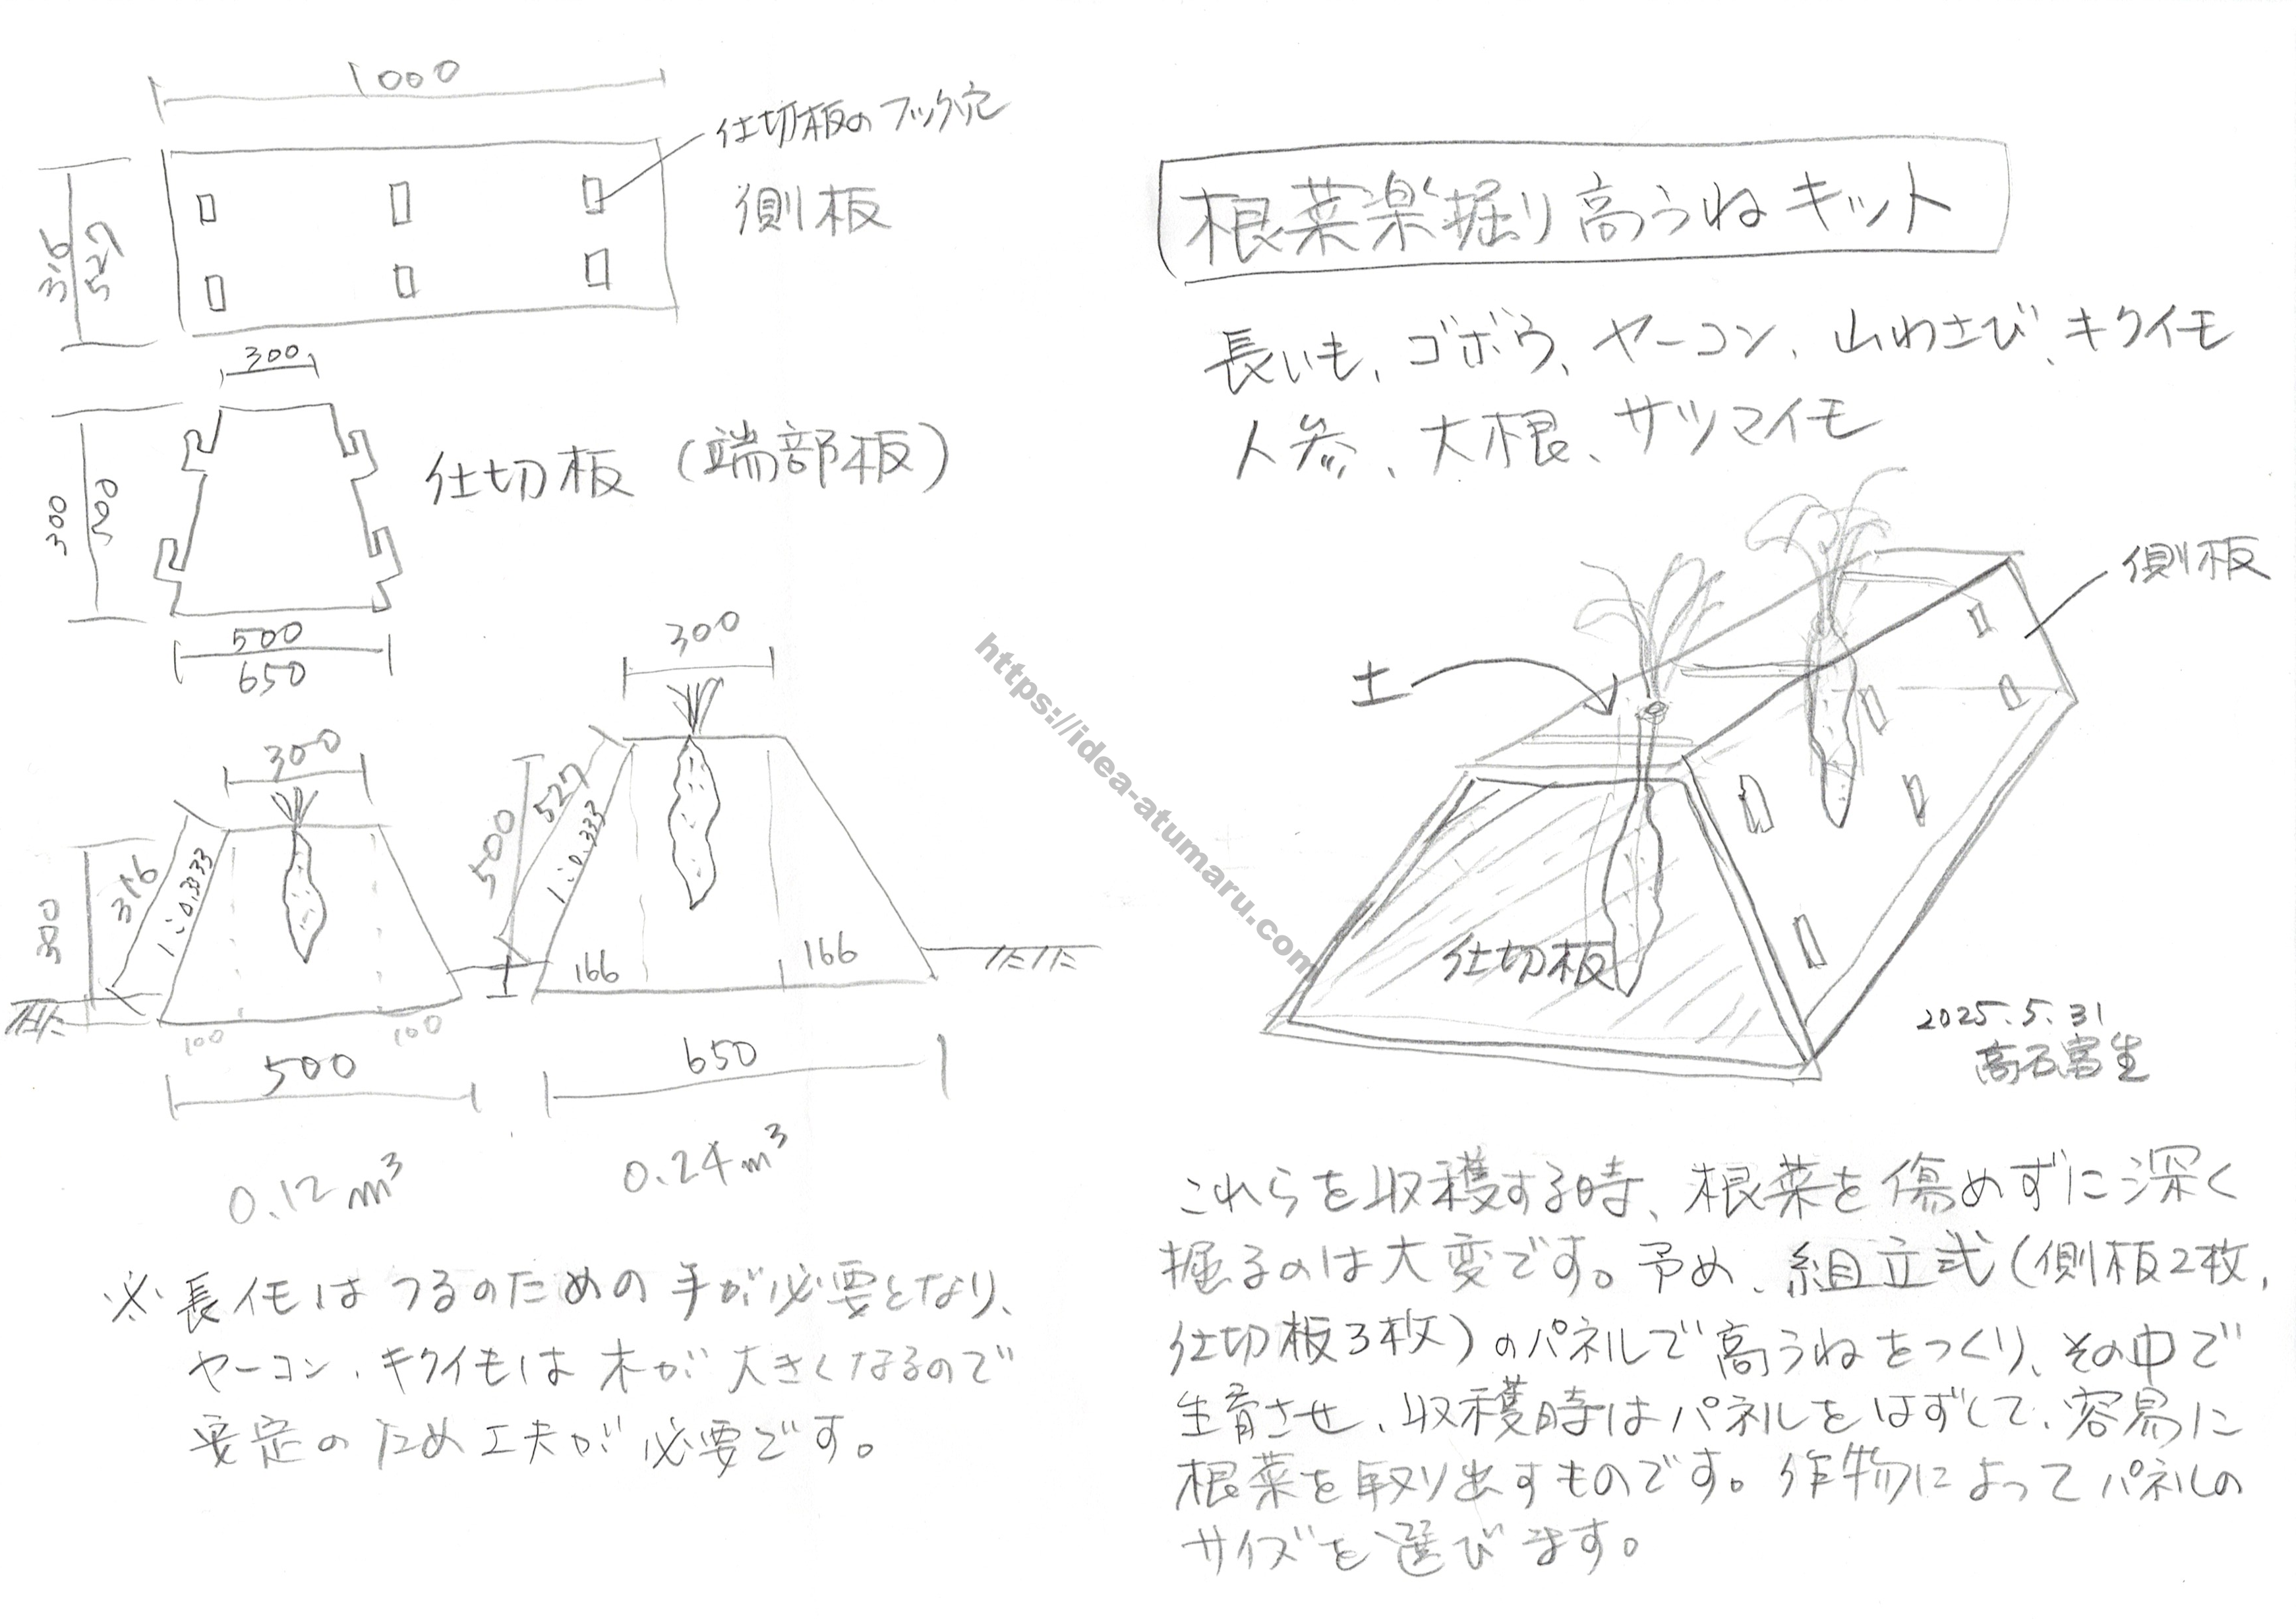 1000
仕切板のフック穴
側板
316
527
300
300
500
仕切板（端部板）
500
650
300
300
316
1:0.333
100
100
500
0.12m³
300
500
527
1:0.333
166
166
650
0.24m³
※長イモはつるのための手が必要となり、
ヤーコン、キクイモは木が大きくなるので
安定のため工夫が必要です。
根菜楽掘り高うねキット
長いも、ゴボウ、ヤーコン、山わさび、キクイモ
人参、大根、サツマイモ
側板
土
仕切板
2025.5.31
高石富生
これらを収穫する時、根菜を傷めずに深く
掘るのは大変です。予め、組立式（側板2枚,
仕切板3枚）のパネルで高うねをつくり、その中で
生育させ、収穫時はパネルをはずして、容易に
根菜を取り出すものです。作物によってパネルの
サイズを選びます。
https://idea-atumaru.com